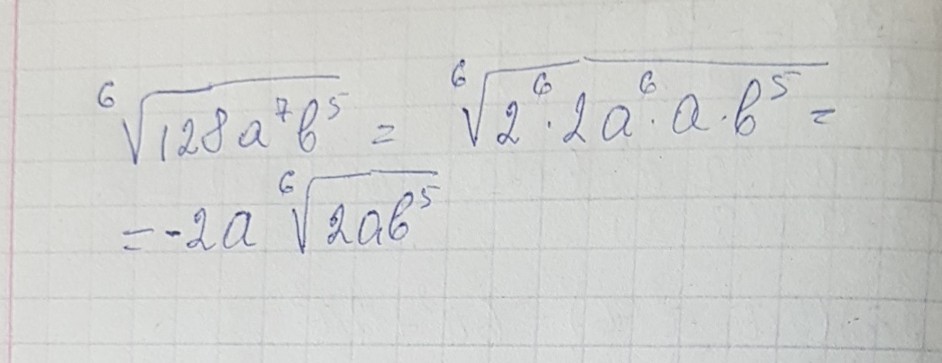 ⁶√128a⁷b⁵ = ⁶√2⁶·2a⁶·a·b⁵ =
= -2a ⁶√2ab⁵